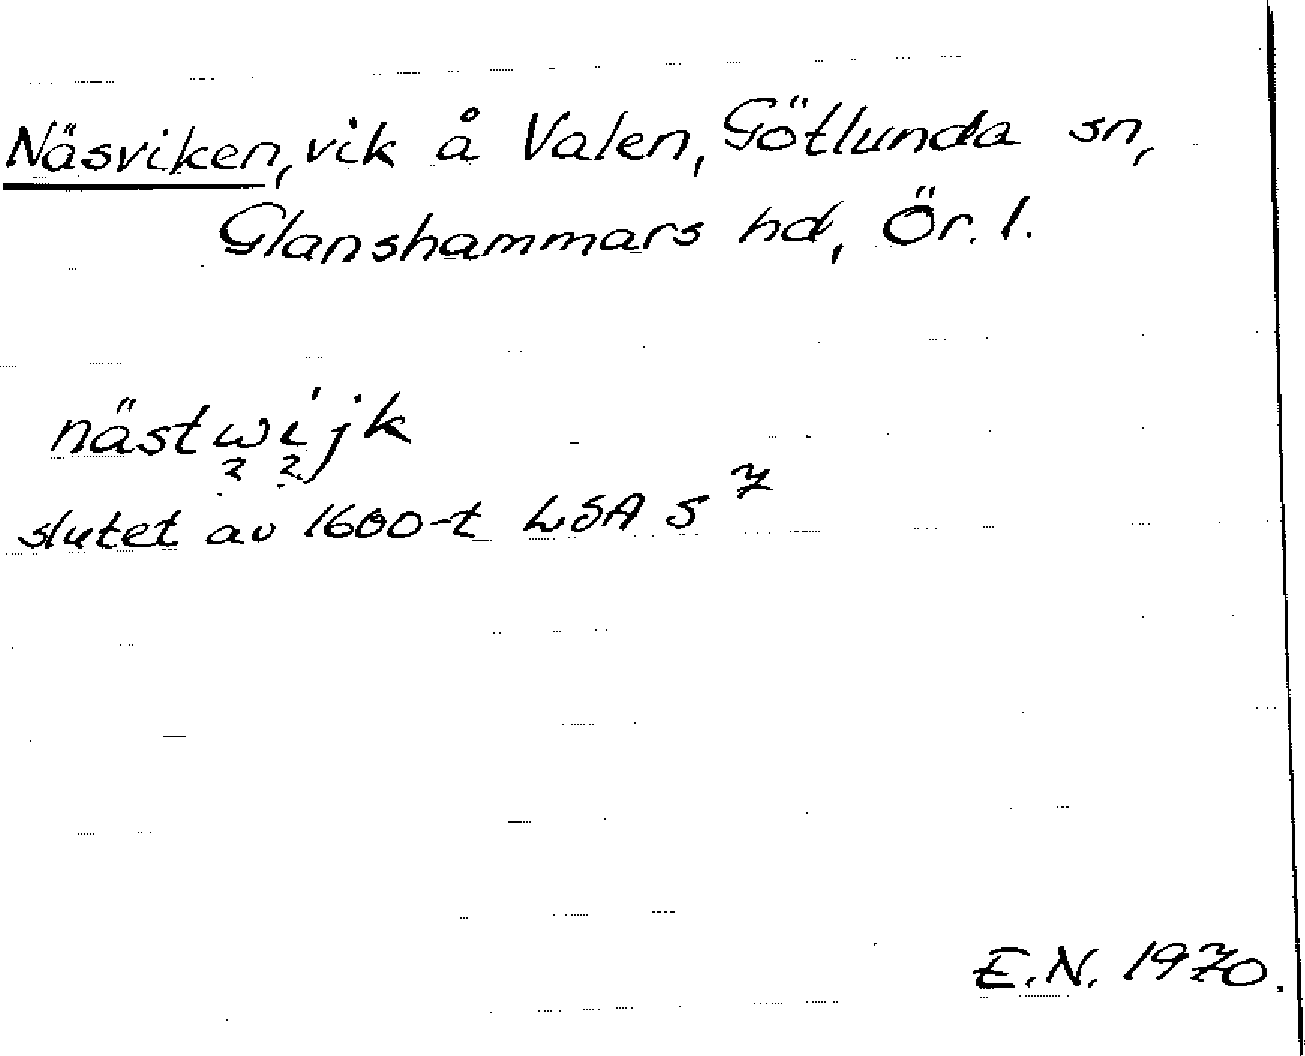 Näsviken, vik å Valen, Götlunda sn,
Glanshammars hd, Ör. l.
nästwijk
? ?
slutet av 1600-t LSA S 7
E.N. 1970.